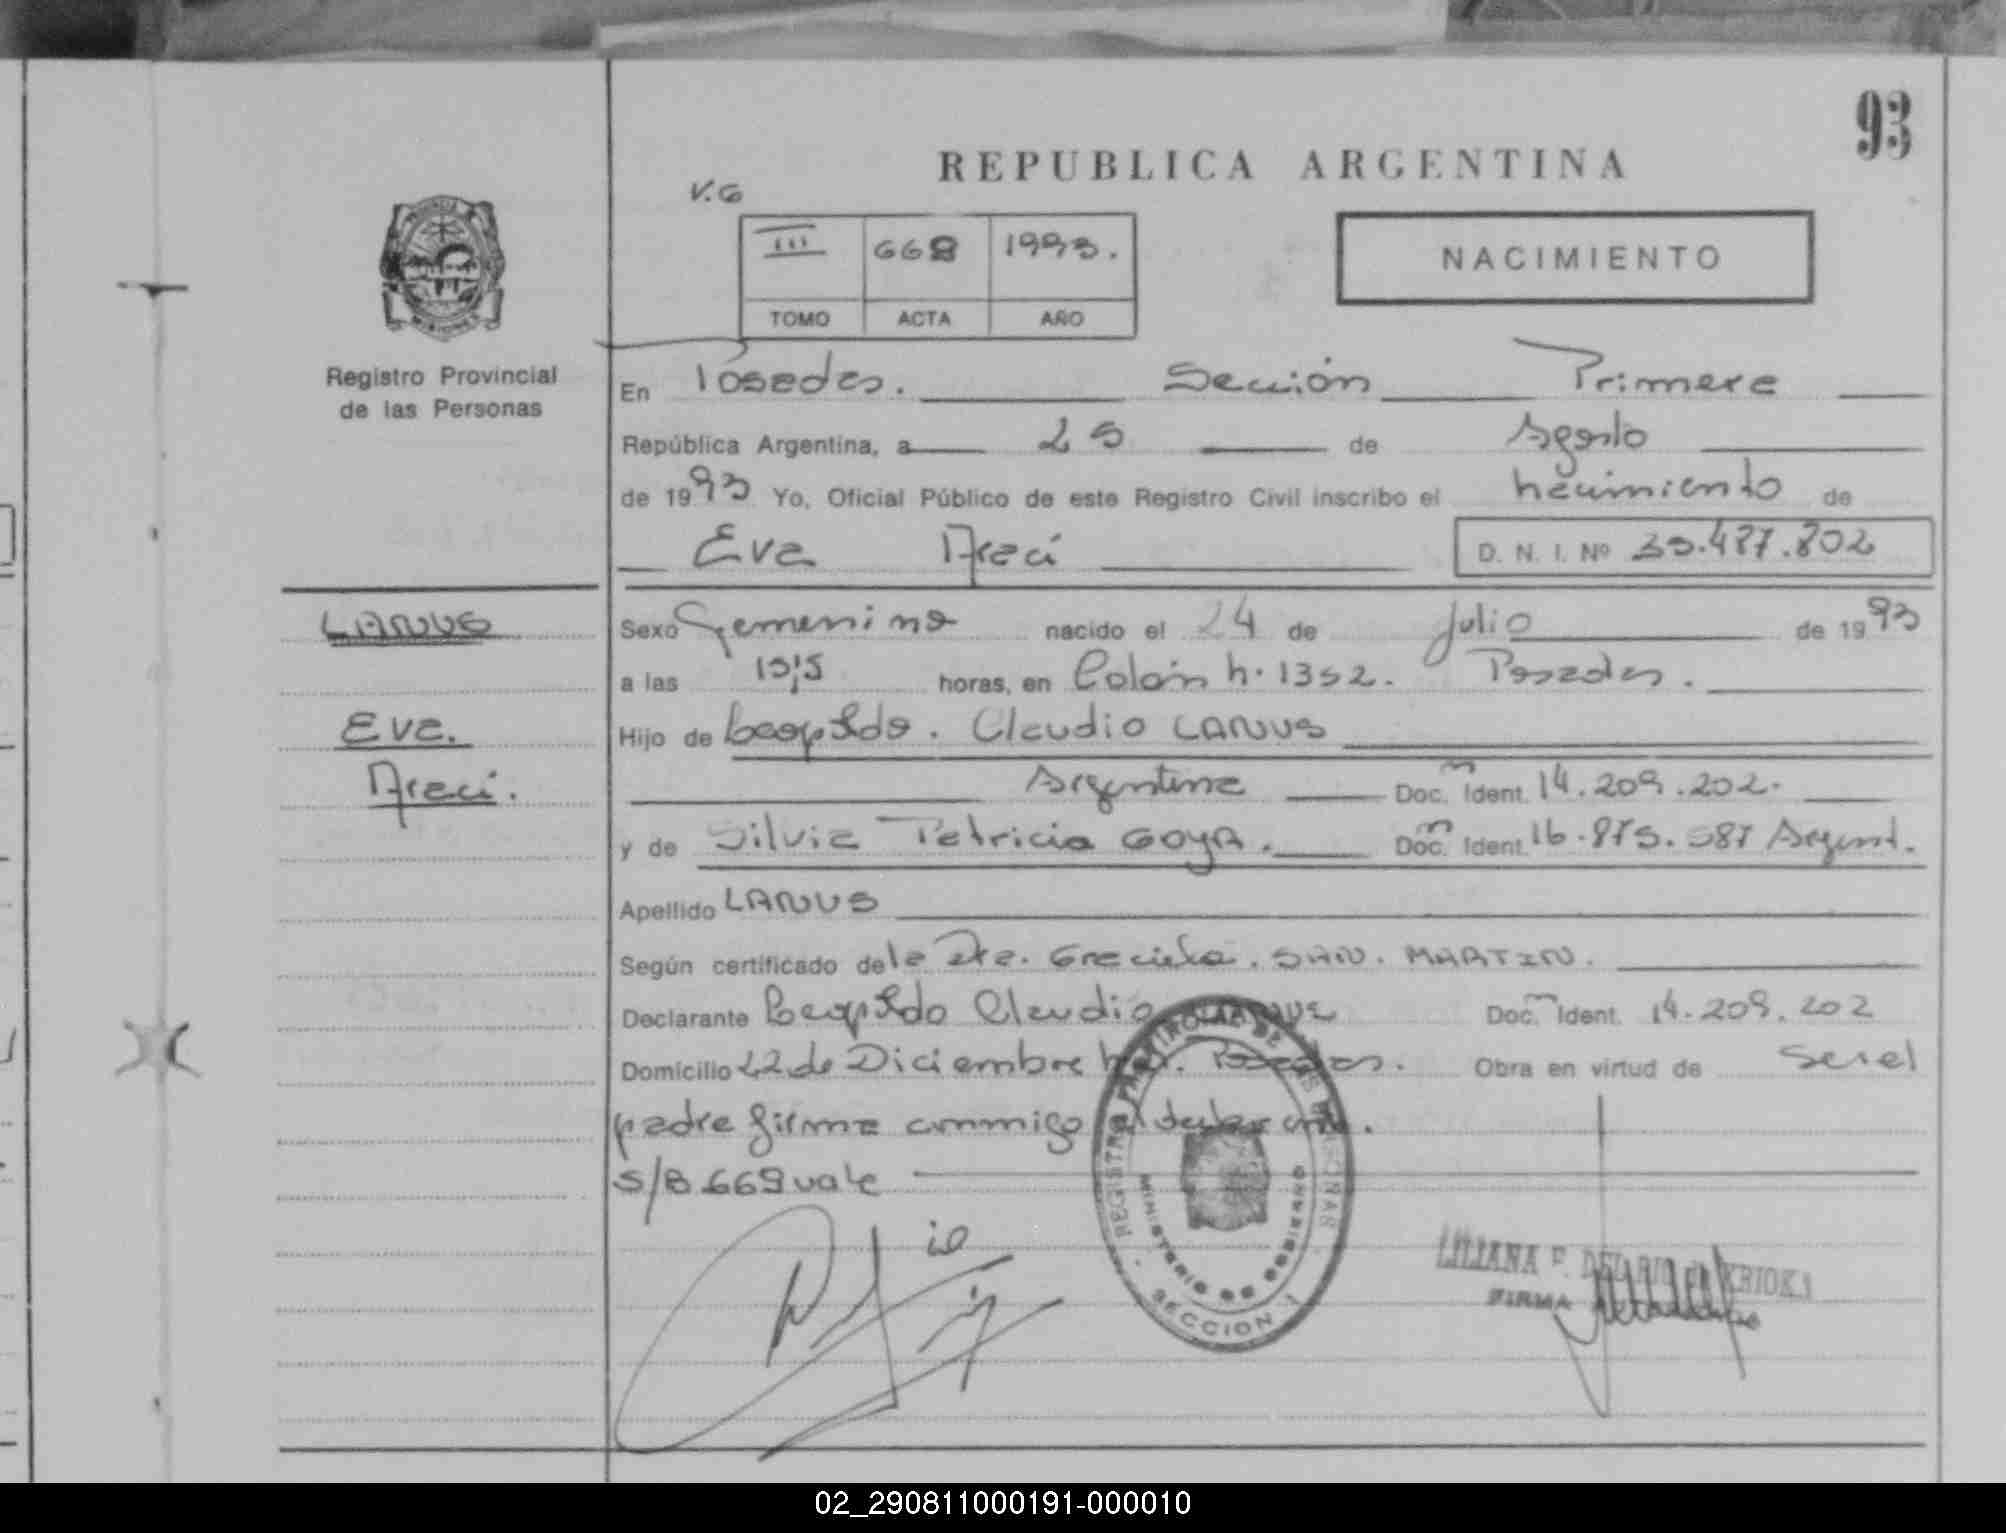 93
REPUBLICA ARGENTINA
V.G
III 668 1993.
TOMO ACTA AÑO
NACIMIENTO
PROVINCIA DE MISIONES
Registro Provincial
de las Personas
En Posadas. Sección Primera
República Argentina, a 25 de Agosto
de 1993 Yo, Oficial Público de este Registro Civil inscribo el nacimiento de
Eva Araci D. N. I. Nº 35.487.802
LANUS
Eva.
Araci.
Sexo Femenino nacido el 24 de Julio de 1993
a las horas, en Colón n. 1352. Posadas.
Hijo de Leopoldo. Claudio LANUS
Argentina Doc. Ident. 14.209.202.
y de Silvia Patricia GOYA. Doc. Ident. 16.875.587 Argent.
Apellido LANUS
Según certificado de la Dra. Graciela. SAN. MARTIN.
Declarante Leopoldo Claudio Doc. Ident. 14.209.202
Domicilio 22 de Diciembre Posadas. Obra en virtud de Ser el
padre firma conmigo al declarante.
S/B 669 vale
REGISTRO PROVINCIAL DE LAS PERSONAS
MINISTERIO DE GOBIERNO
SECCION 1
LILIANA F. DEL RIO
FIRMA
02_290811000191-000010